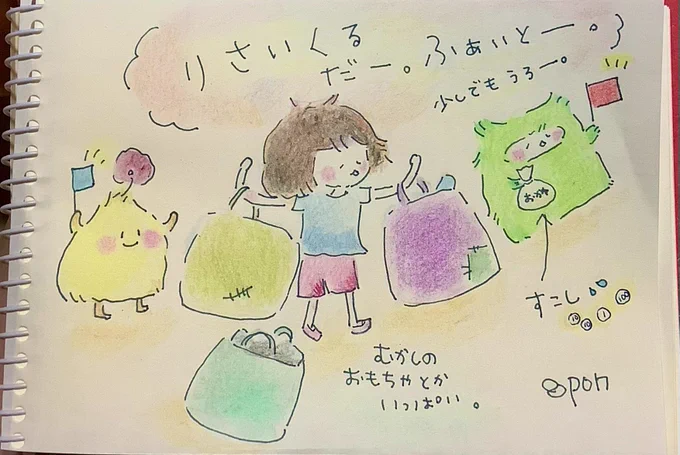 りさいくる
だー。ふぁいとー。
少しでもうろー。
おかね
すこし
10 10 1 100
むかしの
おもちゃとか
いっぱい。
pon